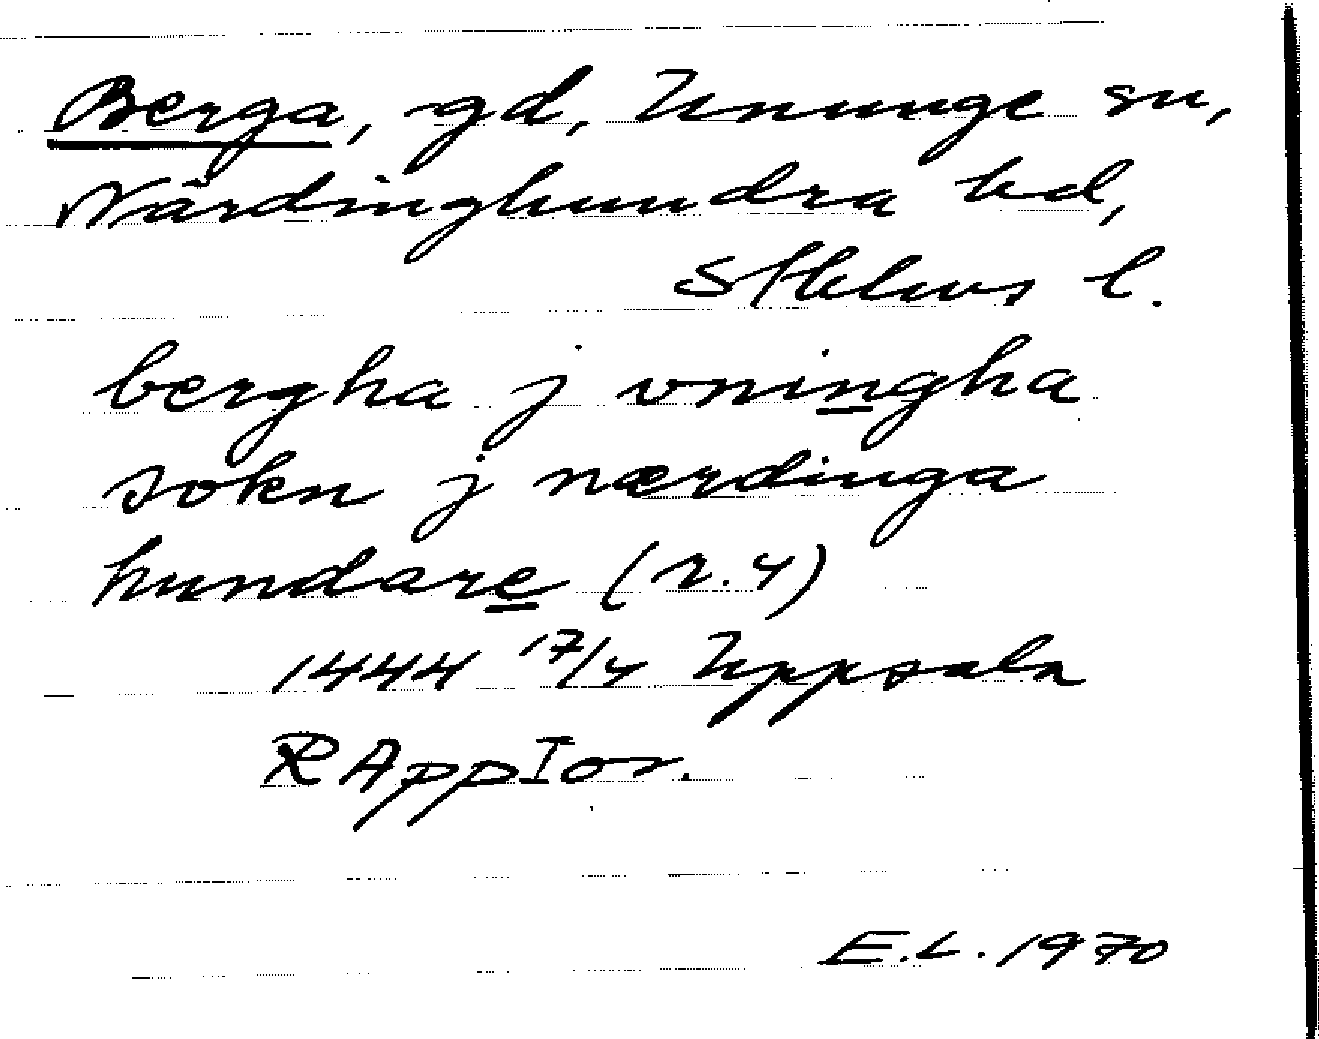 Berga, gd, Ununge sn,
Närdinghundra hd,
Sthlms l.
bergha j vningha
sokn j nærdinga
hundare (r. 4)
1444 17/4 Uppsala
RAppIor.
E.L. 1970